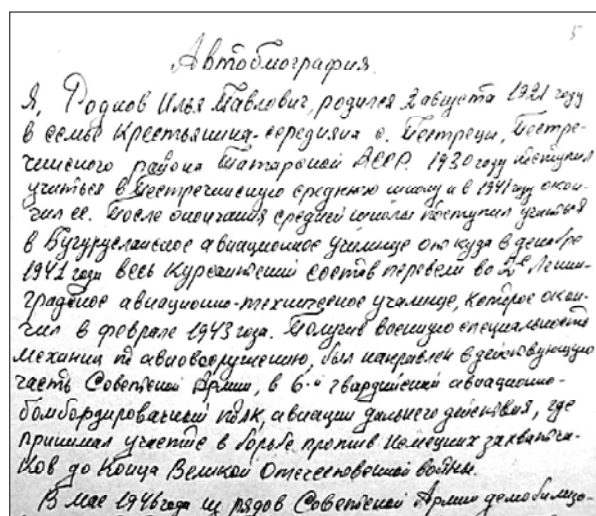 5
Автобиография.
Я, Родков Илья Павлович, родился 2 августа 1921 году
в семье Крестьянина-середняка с. Пестрецы, Пестре-
чинского района Татарской АССР. 1930 году поступил
учиться в Пестречинскую среднюю школу и в 1941 году окон-
чил ее. После окончания средней школы поступил учиться
в Бугурусланское авиационное училище откуда в декабре
1941 года весь Курсантский состав перевели во 2е Ленин-
градское авиационно-техническое училище, которое окон-
чил в феврале 1943 года. Получив военную специальность
механика по авиовооружению, был направлен в действующую
часть Советской Армии, в 6-й гвардейский авиационно-
бомбордировачный полк, авиации дальнего действия, где
принимал участие в борьбе против немецких захватчи-
ков до Конца Великой Отечественной войны.
В мае 1946 года из рядов Советской Армии демобилизо-